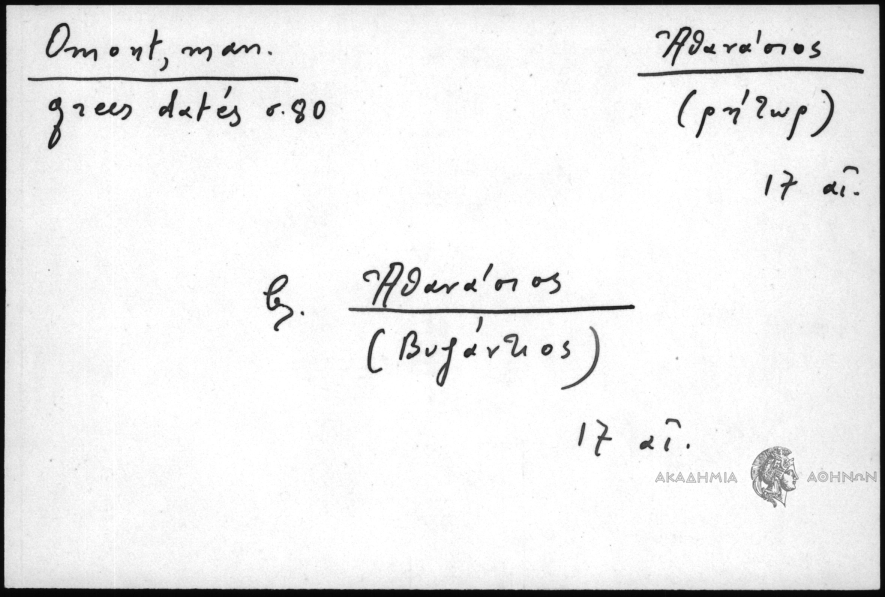 Omont, man.
grecs datés σ. 80
Ἀθανάσιος
(ρήτωρ)
17 αἰ.
βλ. Ἀθανάσιος
(Βυζάντιος)
17 αἰ.
ΑΚΑΔΗΜΙΑ ΑΘΗΝΩΝ